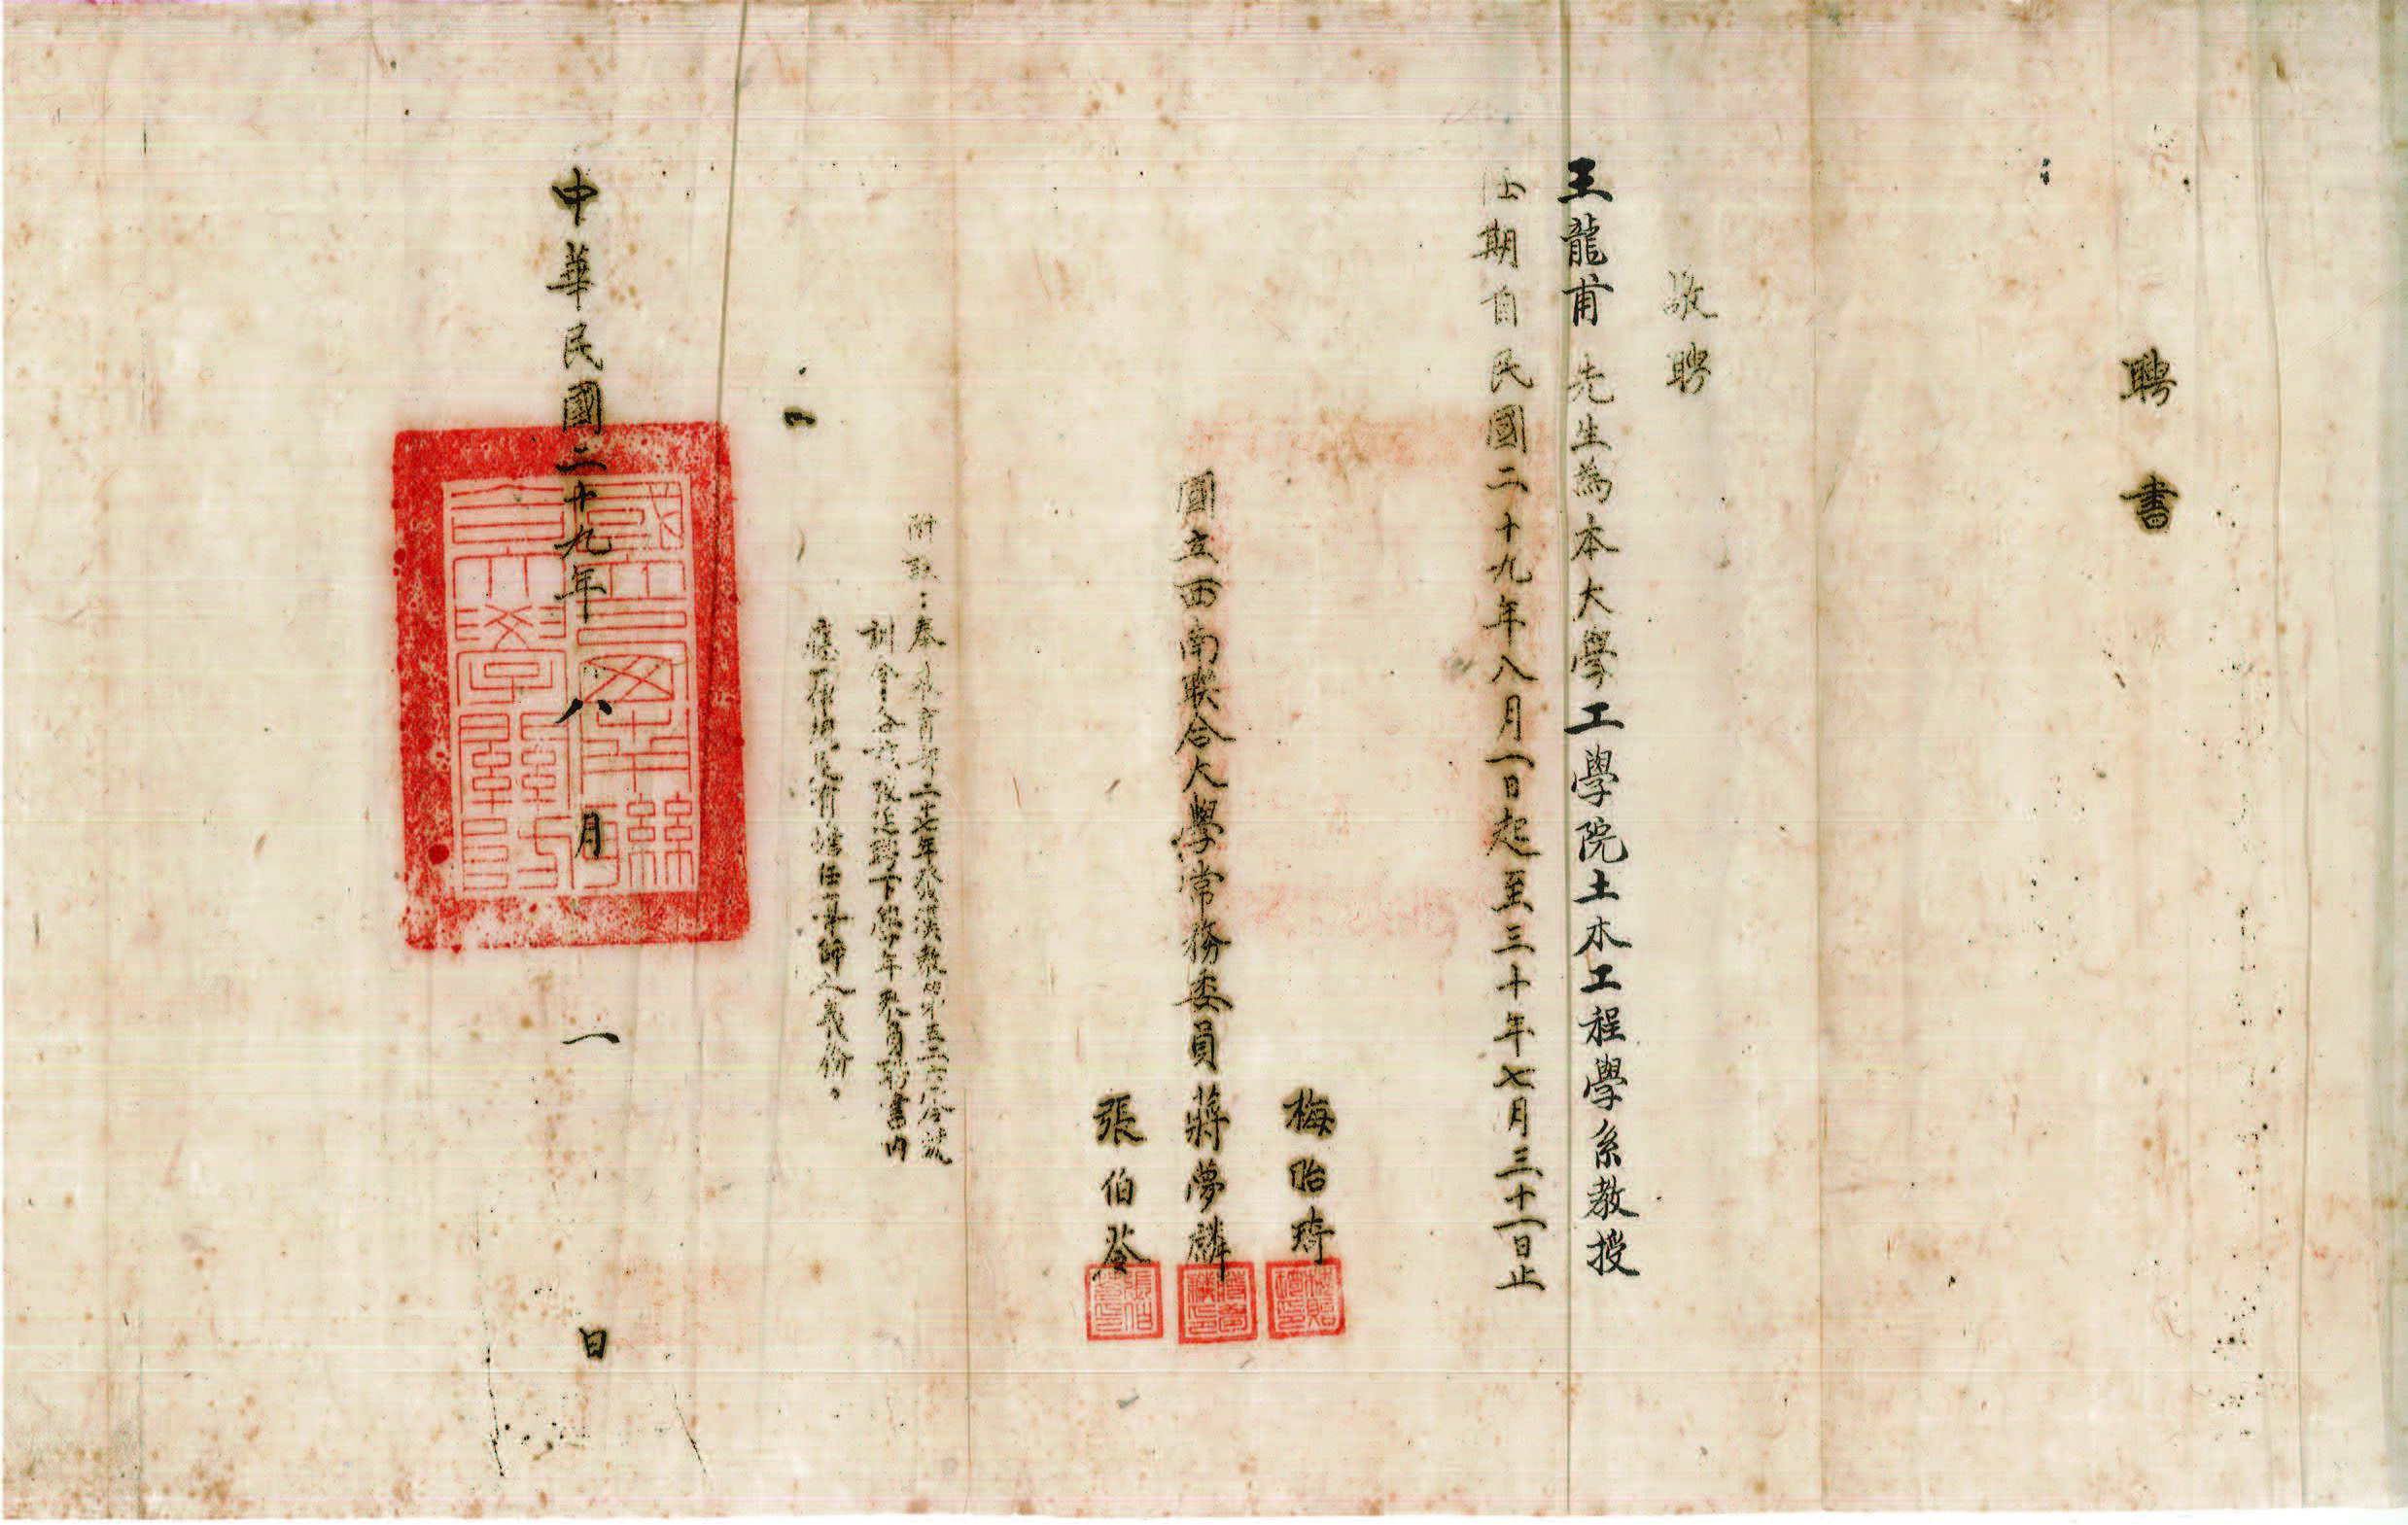 聘書
敬聘
王龍甫 先生為本大學工學院土木工程學系教授
任期自民國二十九年八月一日起至三十年七月三十一日止
梅貽琦
國立西南聯合大學常務委員 蔣夢麟
張伯苓
附註：奉教育部二十七年發漢教字第五三六〇令號
訓令：各校院送聘下學年教員聘書內
應一律規定有擔任導師之義務。
中華民國二十九年八月一日
國立西南聯合大學關防